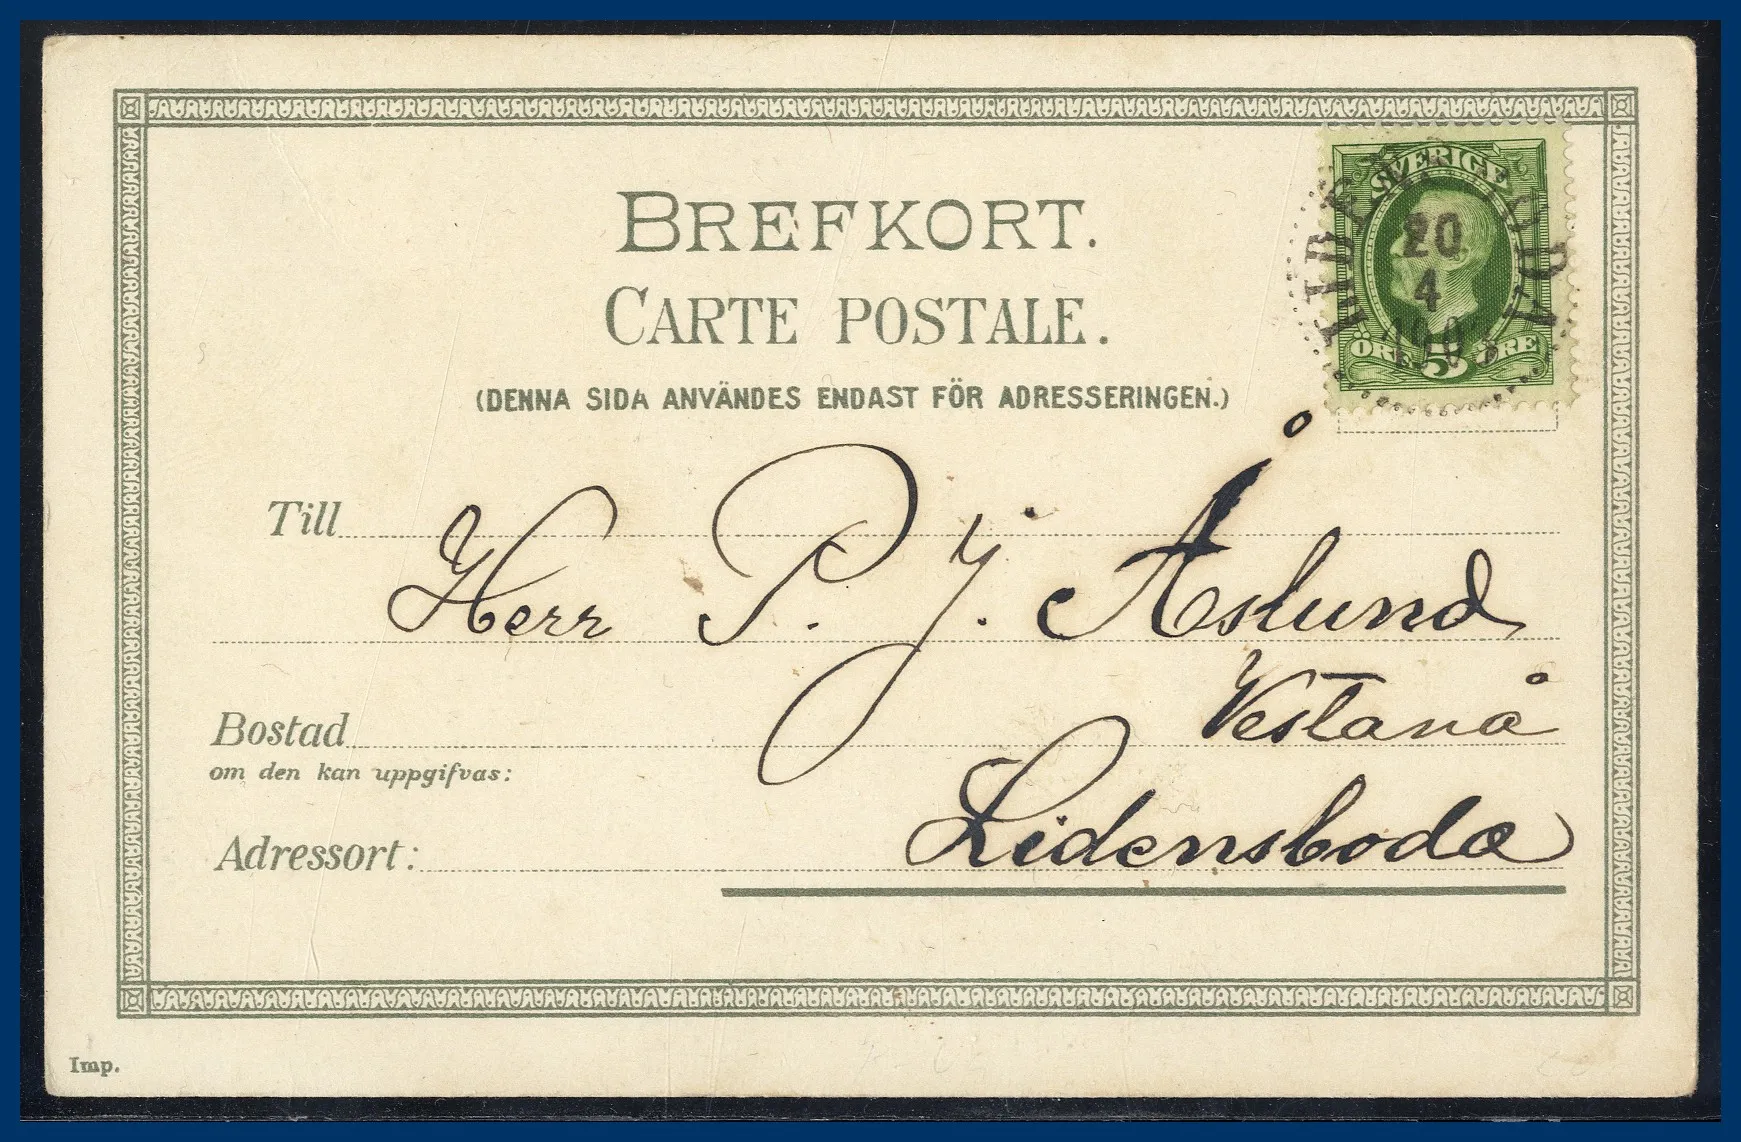 BREFKORT.
CARTE POSTALE.
(DENNA SIDA ANVÄNDES ENDAST FÖR ADRESSERINGEN.)
SVERIGE
20
4
ÖRE 5 ÖRE
Till
Herr P. J. Åslund
Bostad
Vestanå
om den kan uppgifvas:
Adressort: Lidensboda
Imp.